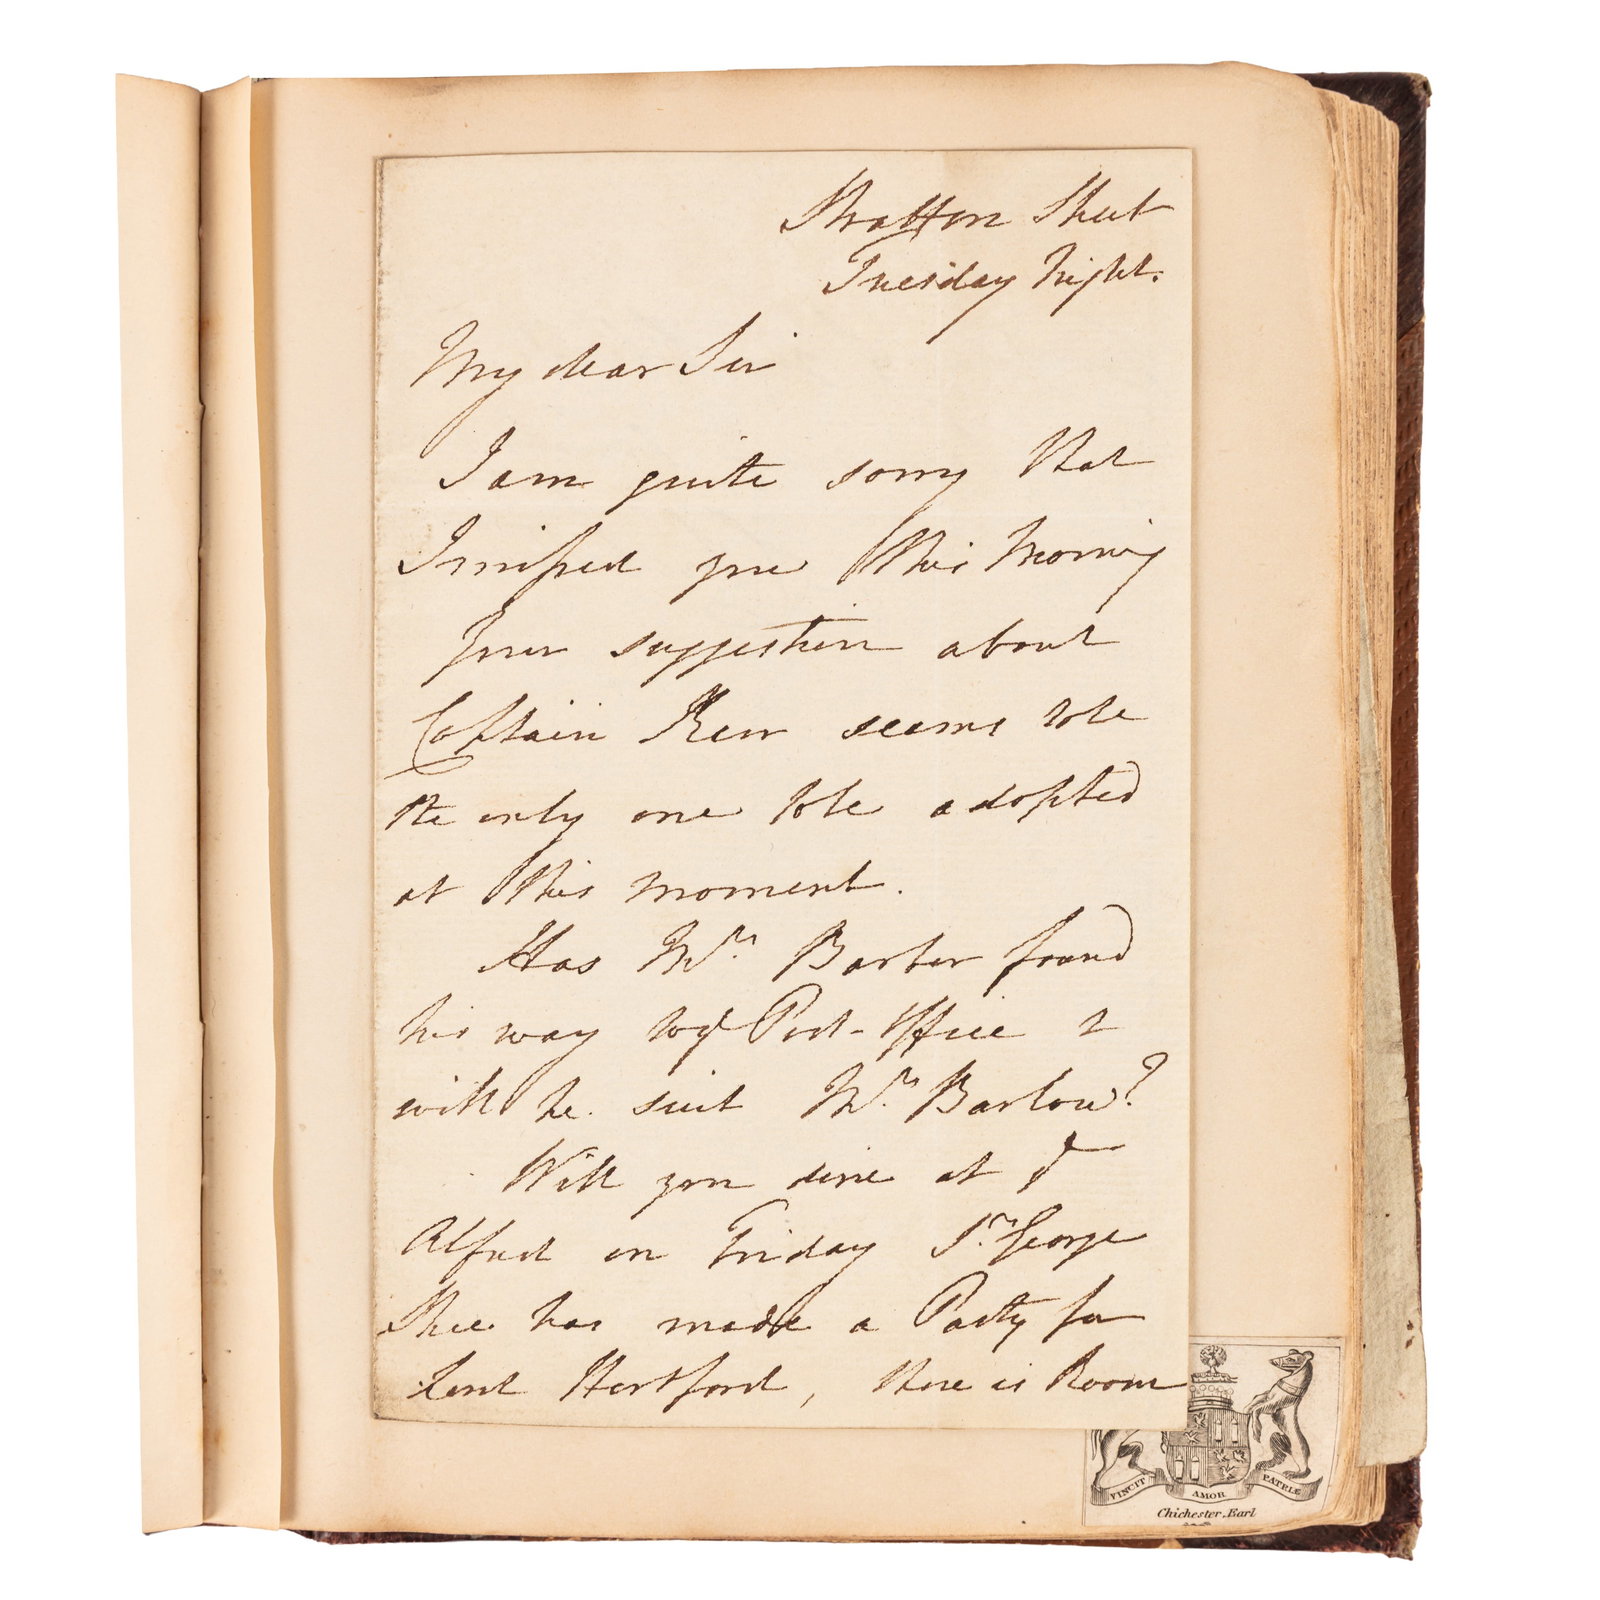 Stratton Street
Tuesday Night.
My dear Sir
I am quite sorry that
I missed you this Morning
Your suggestion about
Captain Kerr seems to be
the only one to be adopted
at this moment.
Has Mr. Barber found
his way to ye Post-Office &
will he suit Mr. Barlow?
Will you dine at ye
Alfred on Friday Sr. George
Shee has made a Party for
Lord Hertford, there is Room
VINCIT AMOR PATRIÆ
Chichester, Earl